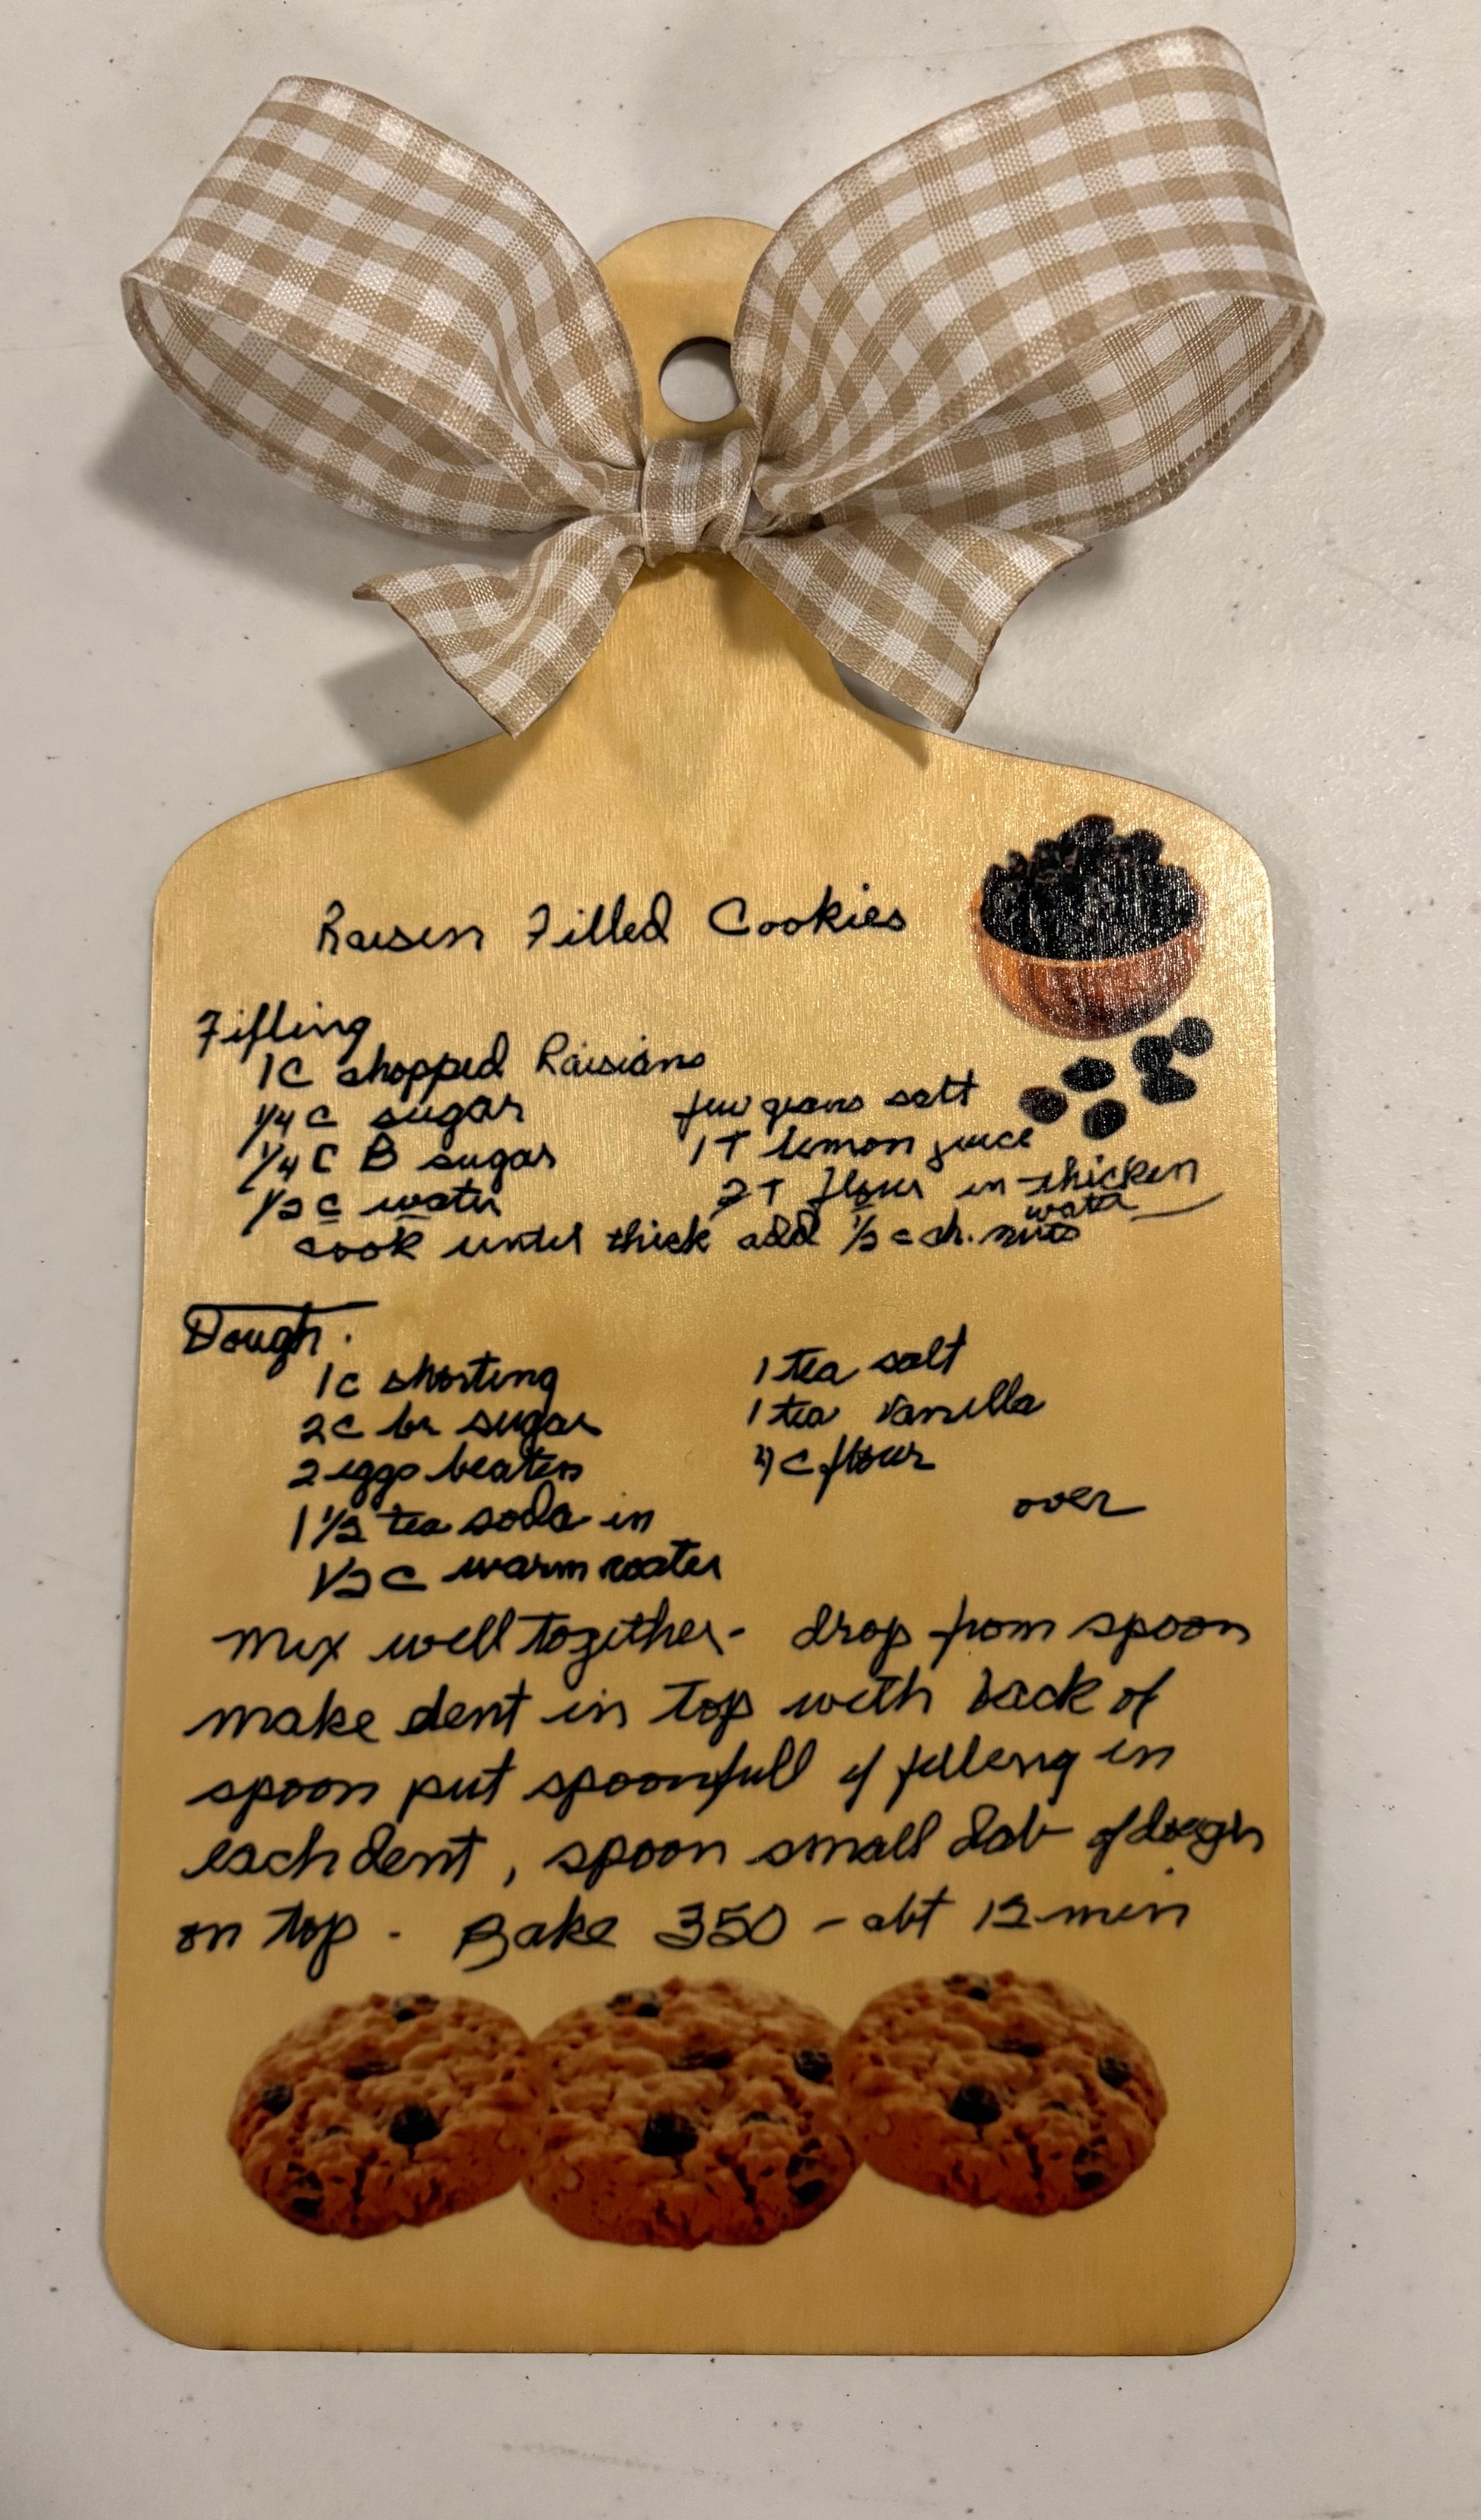 Raisin Filled Cookies
Filling
1C chopped Raisians
1/4 C sugar
1/4 C B sugar
1/2 c water
few grans salt
1 T lemon juice
2 T flour in thicken
water
cook until thick add 1/2 c ch. nuts
Dough.
1c shorting
2c br sugar
2 eggs beaten
1 1/2 tea soda in
1/2 c warm water
1 tea salt
1 tea vanilla
4 c flour
over
Mix well together - drop from spoon
make dent in top with back of
spoon put spoonfull of filling in
each dent, spoon small dab of dough
on top - Bake 350 - abt 12 min